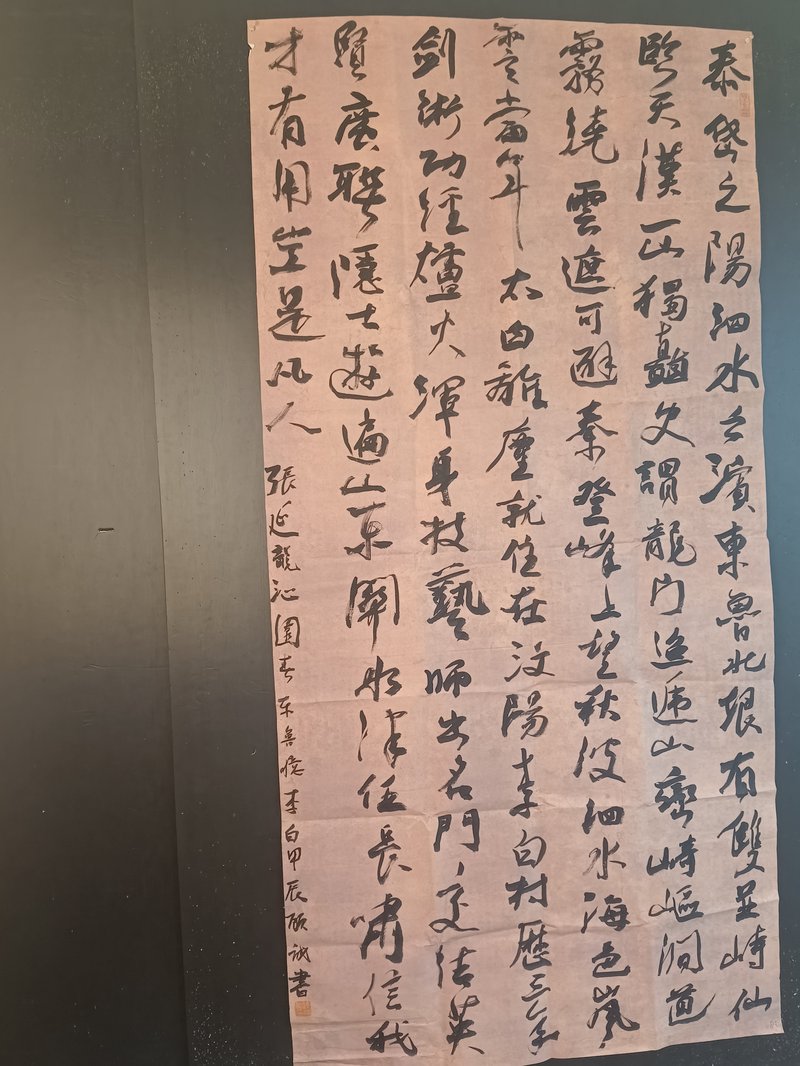 泰岱之陽泗水之濱東魯北垠有雙並峙仙
臨天漢一山獨矗史謂龍門迢遞山巒崎嶇澗道
霧繞雲遮可避秦登峰上望秋波泗水海色嵐
雲當年太白離塵就住在汶陽李白村歷三年
劍術功經爐火渾身技藝師出名門交結英
賢廣聯隱士遊遍山東開船津任長嘯信我
才有用豈是凡人
張延龍沁園春东鲁憶李白甲辰顧誠書